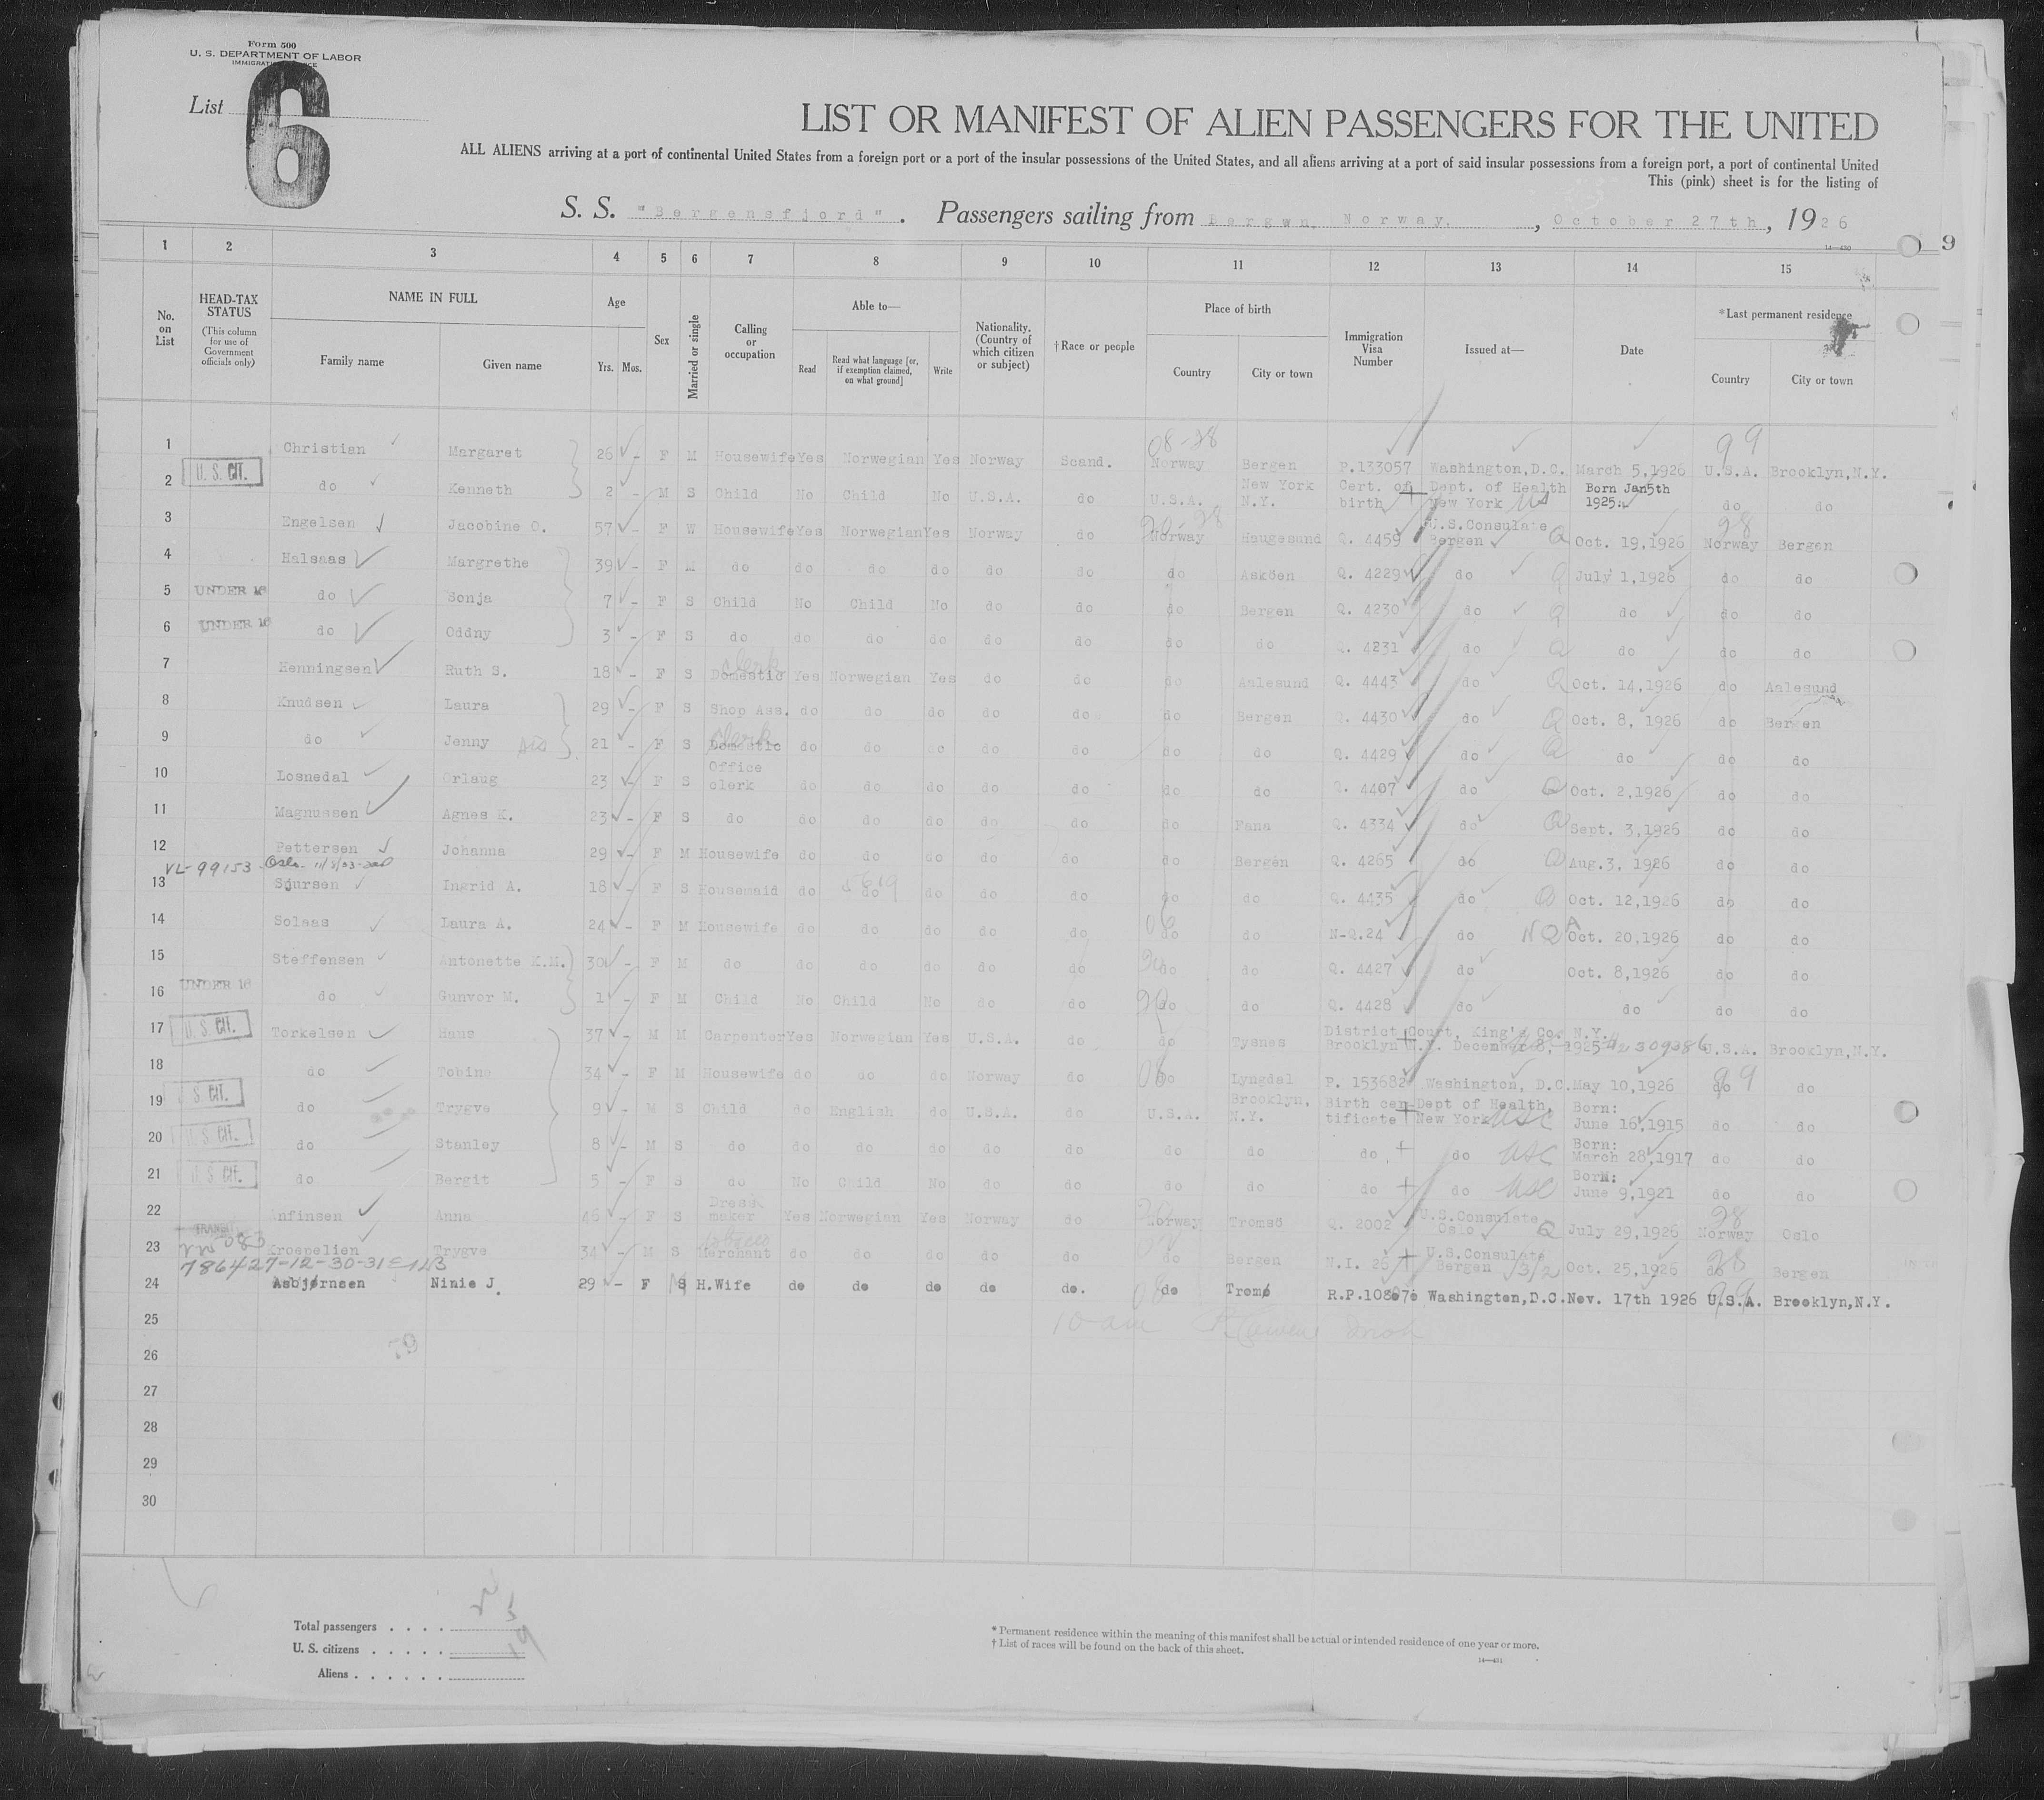 Form 500
U. S. DEPARTMENT OF LABOR
List
6
LIST OR MANIFEST OF ALIEN PASSENGERS FOR THE UNITED
ALL ALIENS arriving at a port of continental United States from a foreign port or a port of the insular possessions of the United States, and all aliens arriving at a port of said insular possessions from a foreign port, a port of continental United
This (pink) sheet is for the listing of
S. S. "Bergensfjord". Passengers sailing from Bergen, Norway. , October 27th, 1926
9
1 2 3 4 5 6 7 8 9 10 11 12 13 14 15
No. on List
HEAD-TAX STATUS (This column for use of Government officials only)
NAME IN FULL Family name Given name
Age Yrs. Mos.
Sex
Married or single
Calling or occupation
Able to— Read Read what language [or, if exemption claimed, on what ground] Write
Nationality. (Country of which citizen or subject)
†Race or people
Place of birth Country City or town
Immigration Visa Number
Issued at—
Date
*Last permanent residence Country City or town
1 Christian Margaret 26 - F M Housewife Yes Norwegian Yes Norway Scand. 08-28 Norway Bergen P.133057 Washington,D.C. March 5,1926 99 U.S.A. Brooklyn,N.Y.
2 U. S. CIT. do Kenneth 2 - M S Child No Child No U.S.A. do U.S.A. New York N.Y. Cert. of birth Dept. of Health New York US Born Jan 5th 1925. do do
3 Engelsen Jacobine O. 57 - F W Housewife Yes Norwegian Yes Norway do Norway Haugesund Q. 4459 U.S.Consulate Bergen Q Oct. 19,1926 28 Norway Bergen
4 Halsaas Margrethe 39 - F M do do do do do do do Asköen Q. 4229 do Q July 1,1926 do do
5 UNDER 16 do Sonja 7 - F S Child No Child No do do do Bergen Q. 4230 do Q do do do
6 UNDER 16 do Oddny 3 - F S do do do do do do do do Q. 4231 do Q do do do
7 Henningsen Ruth S. 18 - F S clerk Domestic Yes Norwegian Yes do do do Aalesund Q. 4443 do Q Oct. 14,1926 do Aalesund
8 Knudsen Laura 29 - F S Shop Ass. do do do do do do Bergen Q. 4430 do Q Oct. 8, 1926 do Bergen
9 do Jenny 21 - F S clerk Domestic do do do do do do do Q. 4429 do Q do do do
10 Losnedal Orlaug 23 - F S Office clerk do do do do do do do Q. 4407 do Q Oct. 2,1926 do do
11 Magnussen Agnes K. 23 - F S do do do do do do do Fana Q. 4334 do Q Sept. 3,1926 do do
12 Pettersen Johanna 29 - F M Housewife do do do do do do Bergen Q. 4265 do Q Aug.3, 1926 do do
VL-99153
13 Sjursen Ingrid A. 18 - F S Housemaid do do do do do do do Q. 4435 do Q Oct. 12,1926 do do
14 Solaas Laura A. 24 - F M Housewife do do do do do 08 do do N-Q.24 do NQ Oct. 20,1926 do do
15 Steffensen Antonette K.M. 30 - F M do do do do do do do do Q. 4427 do Oct. 8,1926 do do
16 UNDER 16 do Gunvor M. 1 - F M Child No Child No do do do do Q. 4428 do do do do
17 U. S. CIT. Torkelsen Hans 37 - M M Carpenter Yes Norwegian Yes U.S.A. do do Tysnes District Court, King's Co. N.Y. Brooklyn N.Y. December 8, 1925 U.S.A. Brooklyn,N.Y.
18 do Tobine 34 - F M Housewife do do do Norway do 08 do Lyngdal P. 153682 Washington, D.C. May 10,1926 99 do do
19 U. S. CIT. do Trygve 9 - M S Child do English do U.S.A. do U.S.A. Brooklyn, N.Y. Birth certificate Dept of Health, New York USC Born: June 16,1915 do do
20 U. S. CIT. do Stanley 8 - M S do do do do do do do do do do USC Born: March 28,1917 do do
21 U. S. CIT. do Bergit 5 - F S do No Child No do do do do do do USC Born: June 9,1921 do do
22 Anfinsen Anna 46 - F S Dressmaker Yes Norwegian Yes Norway do Norway Tromsö Q. 2002 U.S.Consulate Oslo Q July 29,1926 28 Norway Oslo
23 TRANSIT Kroepelien Trygve 34 - M S Merchant do do do do do do Bergen N.I. 26 U.S.Consulate Bergen 3/2 Oct. 25,1926 28 do Bergen
24 Asbjørnsen Ninie J. 29 - F S H.Wife do do do do do. 08 do Tromø R.P.108070 Washington,D.C. Nov. 17th 1926 99 U.S.A. Brooklyn,N.Y.
25
26
27
28
29
30
Total passengers . . . .
U. S. citizens . . . . .
Aliens . . . . . .
* Permanent residence within the meaning of this manifest shall be actual or intended residence of one year or more.
† List of races will be found on the back of this sheet.
14—431